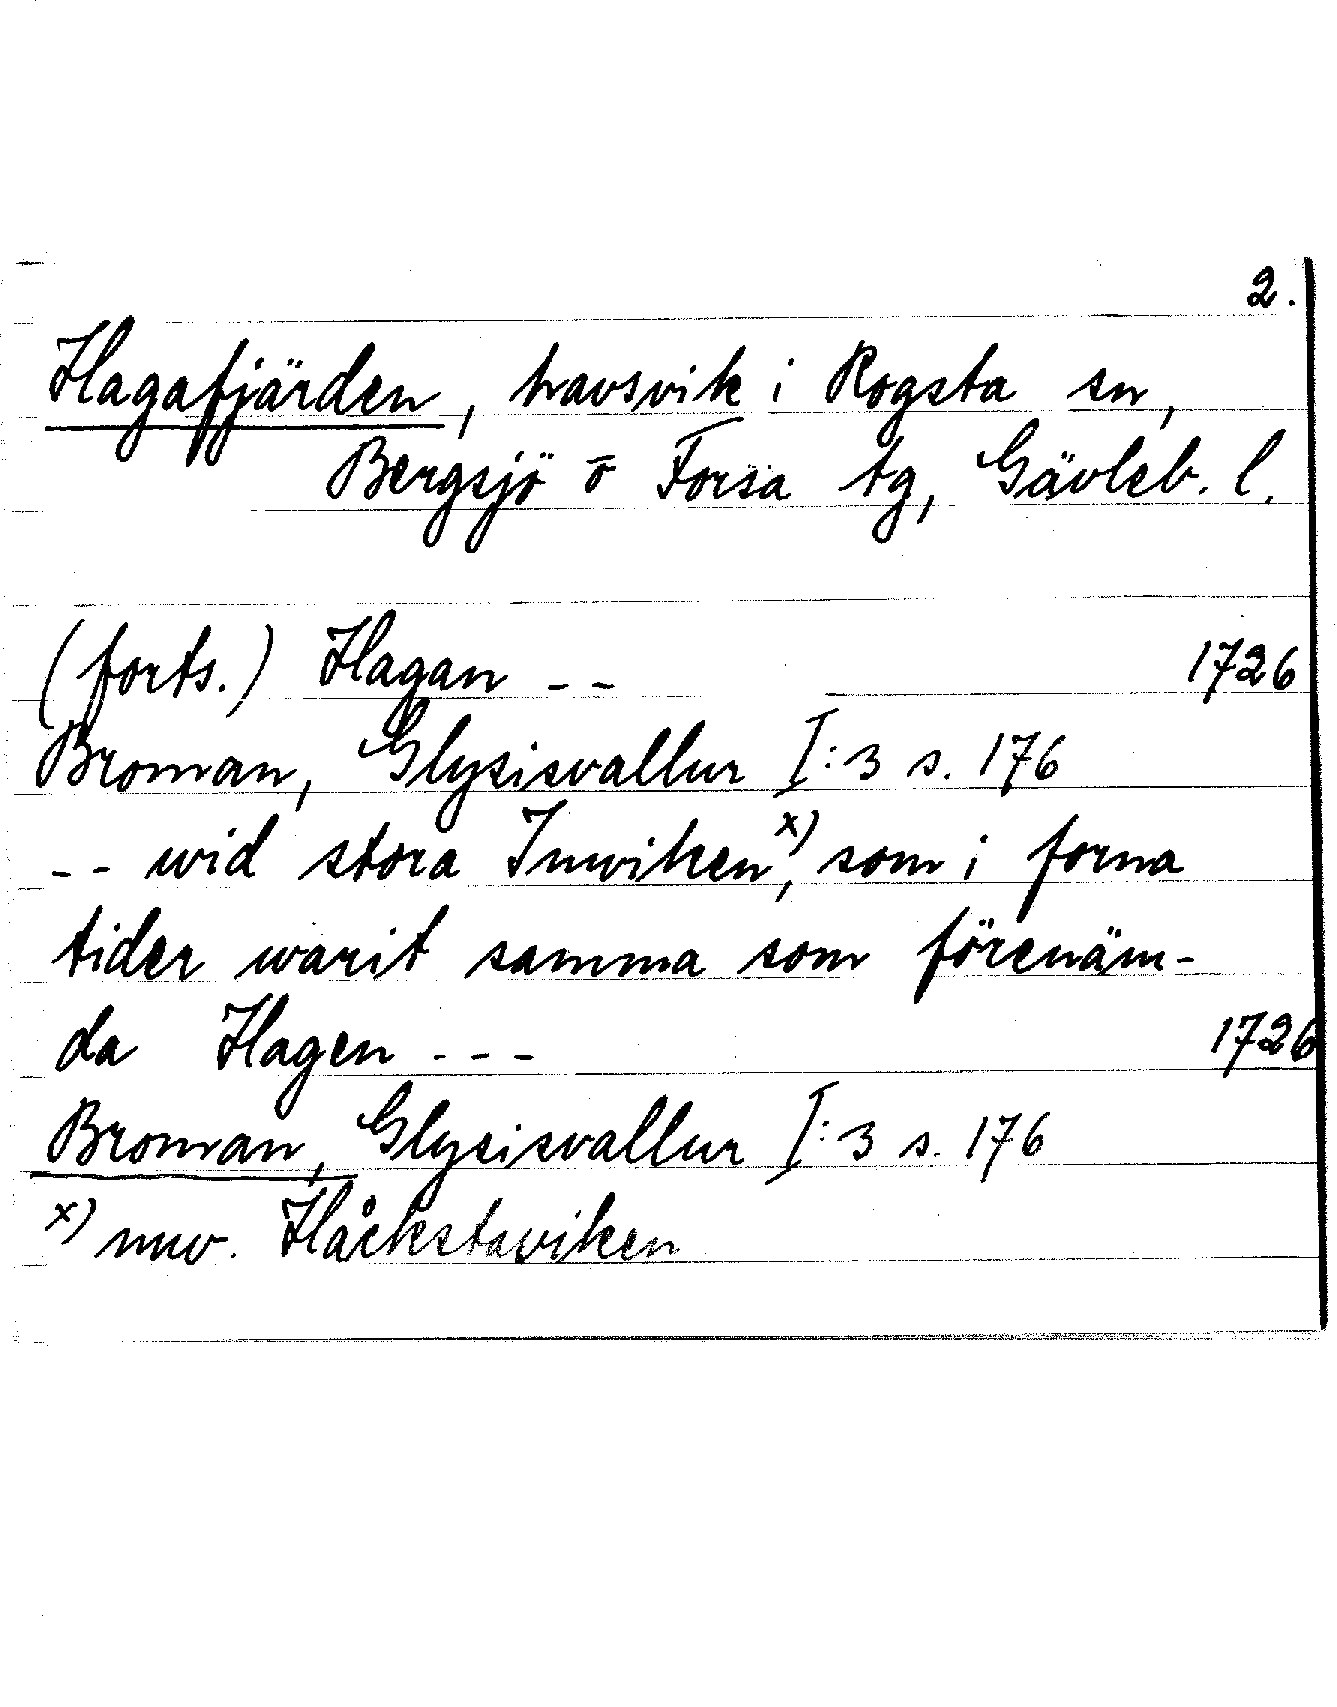 2.
Hagafjärden, havsvik i Rogsta sn,
Bergsjö o Forsa tg, Gävleb. l.
(forts.) Hagan -- 1726
Broman, Glysisvallur I:3 s. 176
-- wid stora Inwiken x), som i forna
tider warit samma som förenäm-
da Hagen --- 1726
Broman, Glysisvallur I:3 s. 176
x) nuv. Håckstaviken